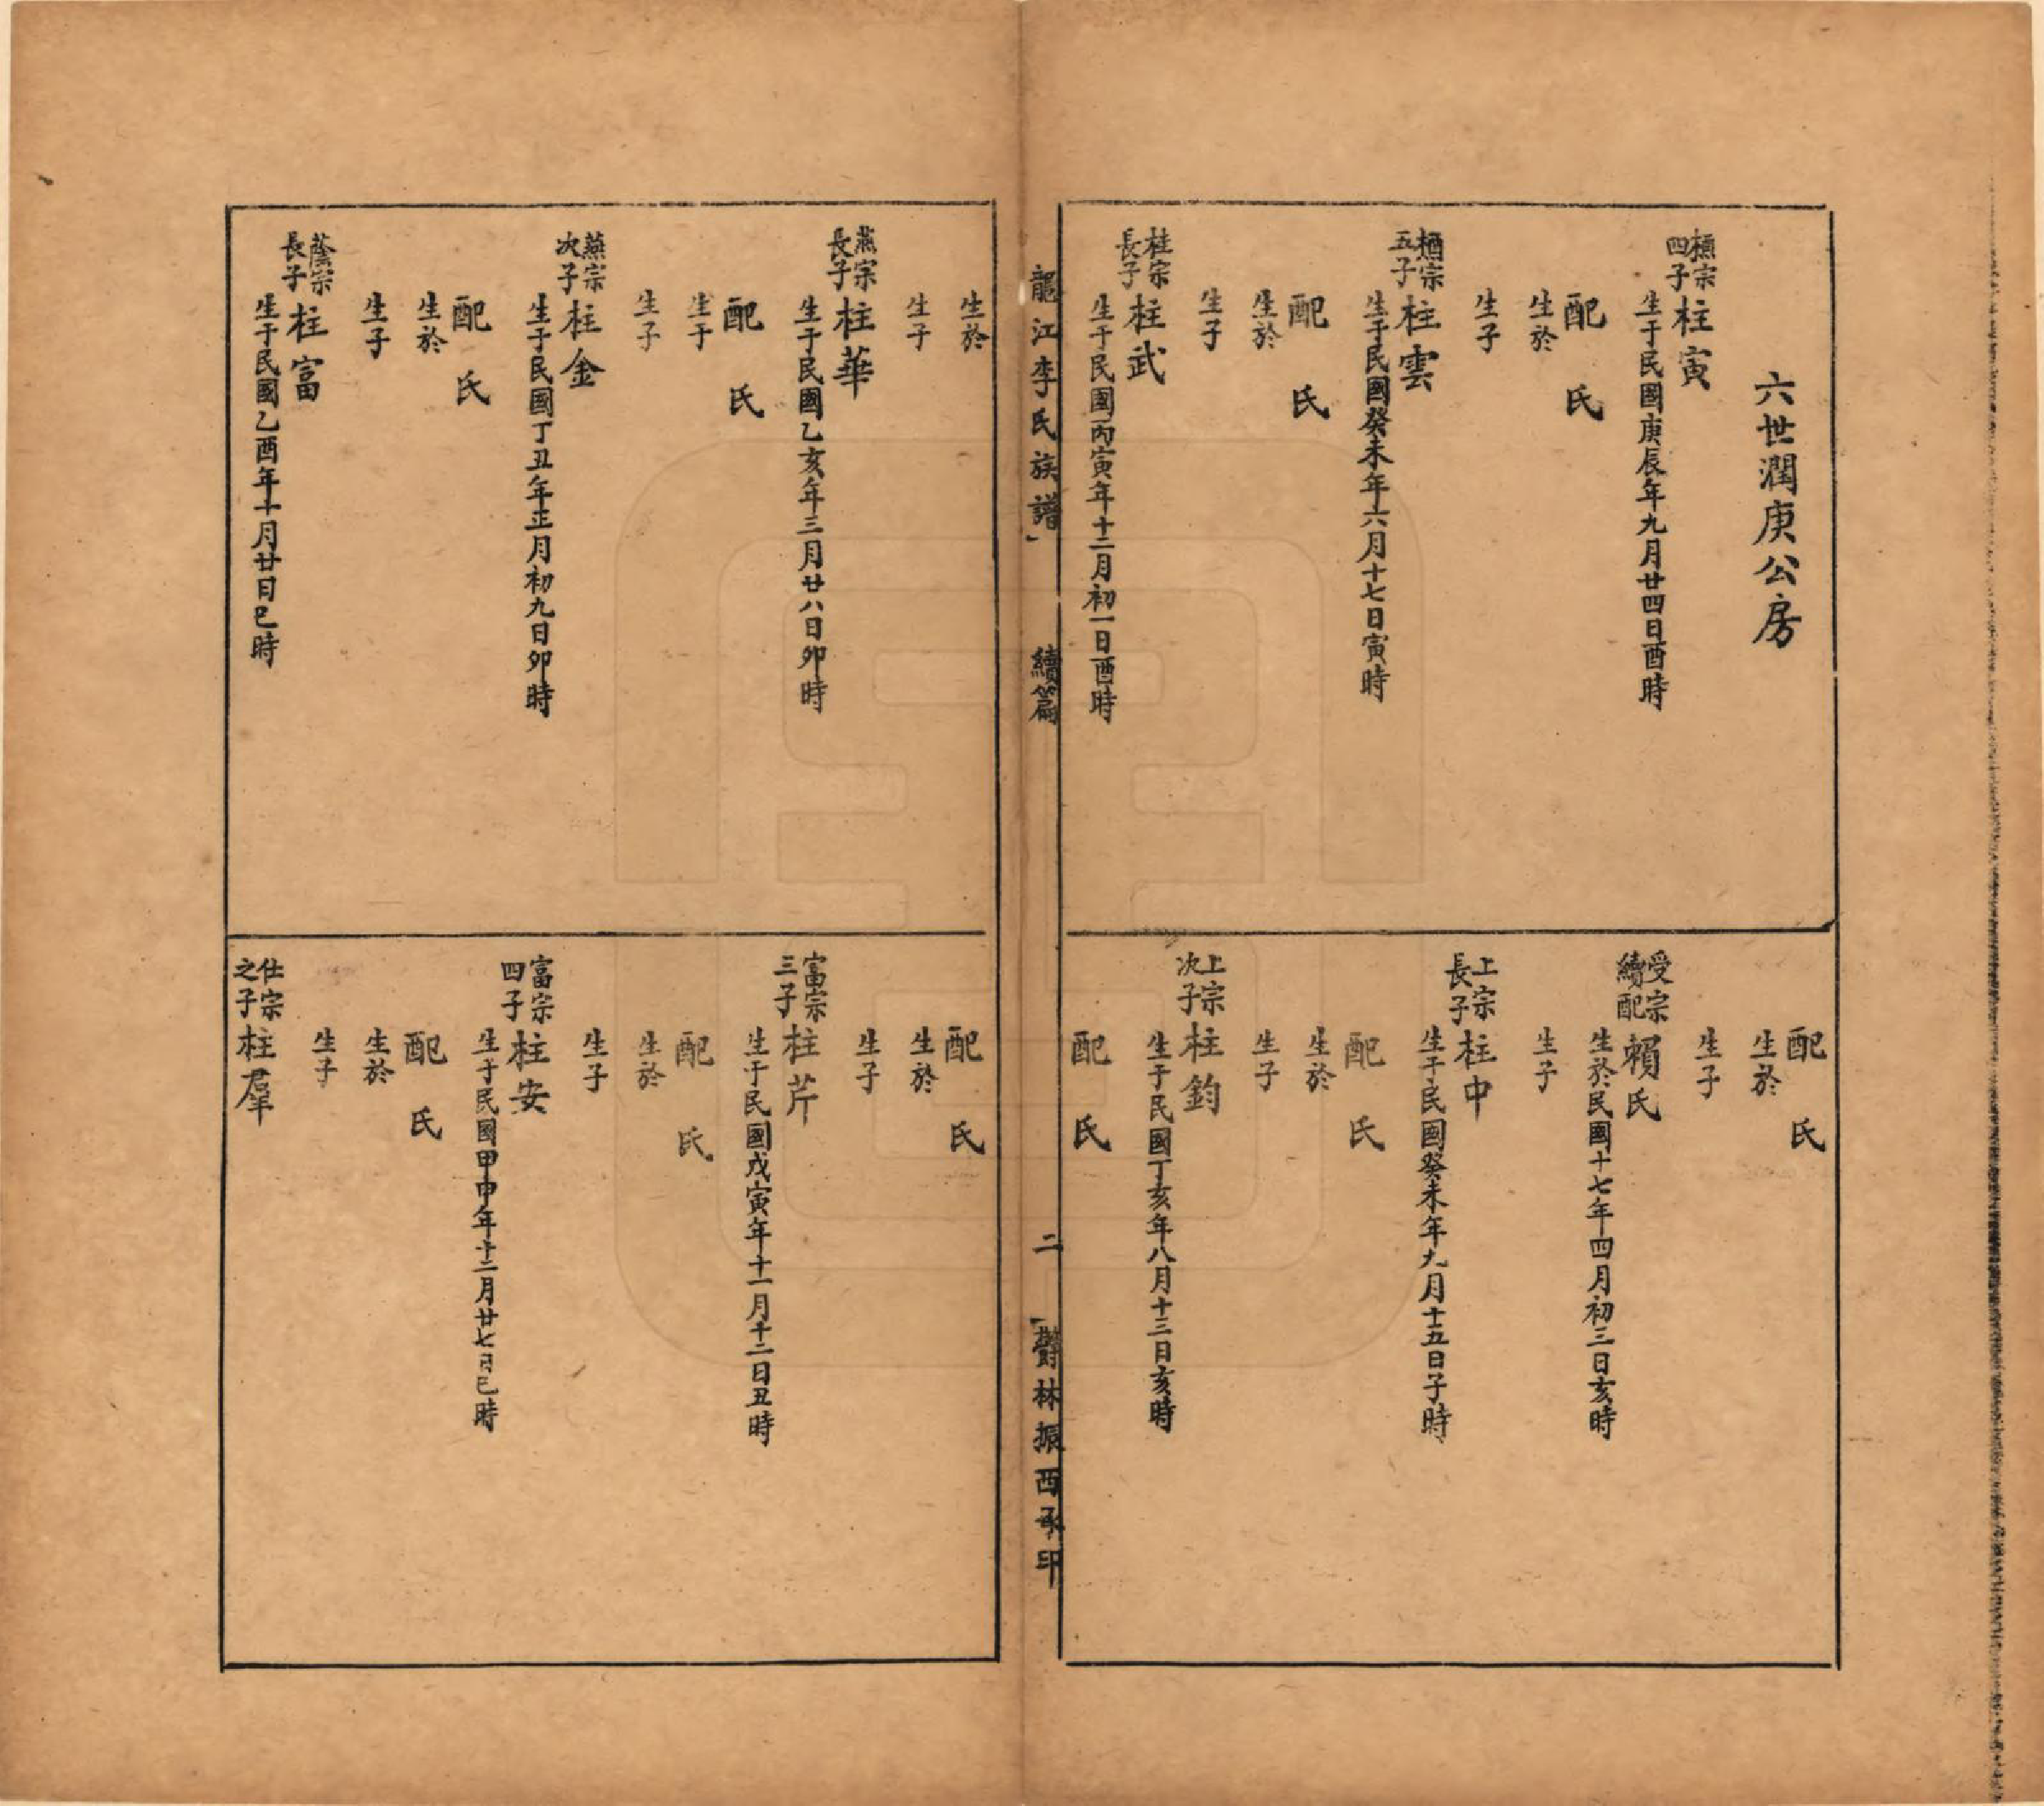 六世潤庚公房
樵宗四子
柱寅
生于民國庚辰年九月廿四日酉時
配 氏
生於
生子
栖宗五子
柱雲
生于民國癸未年六月十七日寅時
配 氏
生於
生子
桂宗長子
柱武
生于民國丙寅年十二月初一日酉時
配 氏
生於
生子
受宗續配
賴氏
生於民國十七年四月初三日亥時
生子
上宗長子
柱中
生于民國癸未年九月十五日子時
配 氏
生於
生子
上宗次子
柱鈞
生于民國丁亥年八月十三日亥時
配 氏
龍江李氏族譜 續篇 二 鬱林振西承印
生於
生子
燕宗長子
柱華
生于民國乙亥年三月廿八日卯時
配 氏
生于
生子
燕宗次子
柱金
生于民國丁丑年正月初九日卯時
配 氏
生於
生子
蔭宗長子
柱富
生于民國乙酉年十月廿日巳時
配 氏
生於
生子
富宗三子
柱芹
生于民國戊寅年十一月十二日丑時
配 氏
生於
生子
富宗四子
柱安
生于民國甲申年十二月廿七日巳時
配 氏
生於
生子
仕宗之子
柱羣